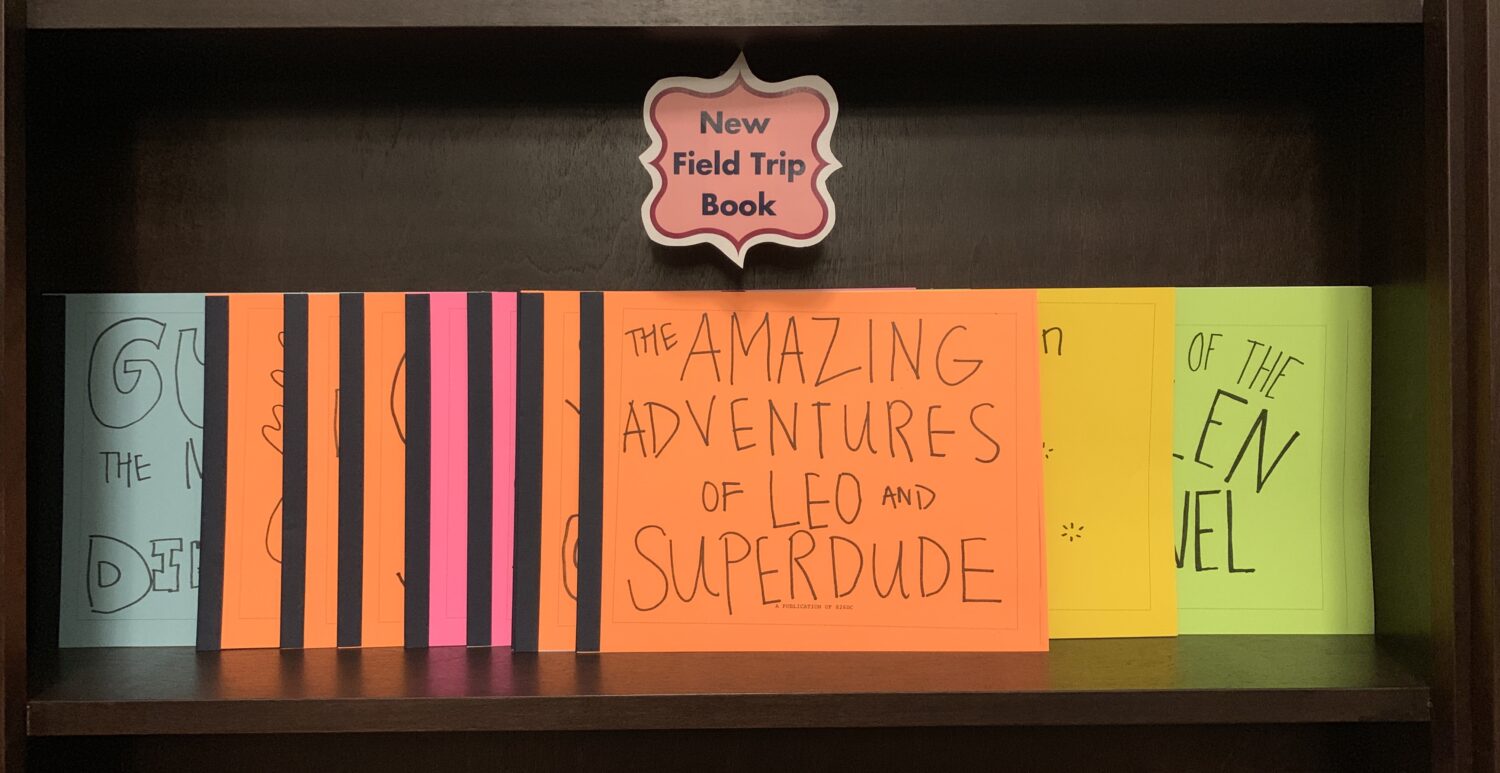 New
Field Trip
Book
GU
THE
THE AMAZING
ADVENTURES
OF LEO AND
SUPERDUDE
A PUBLICATION OF 826DC
n
OF THE
LEN
VEL